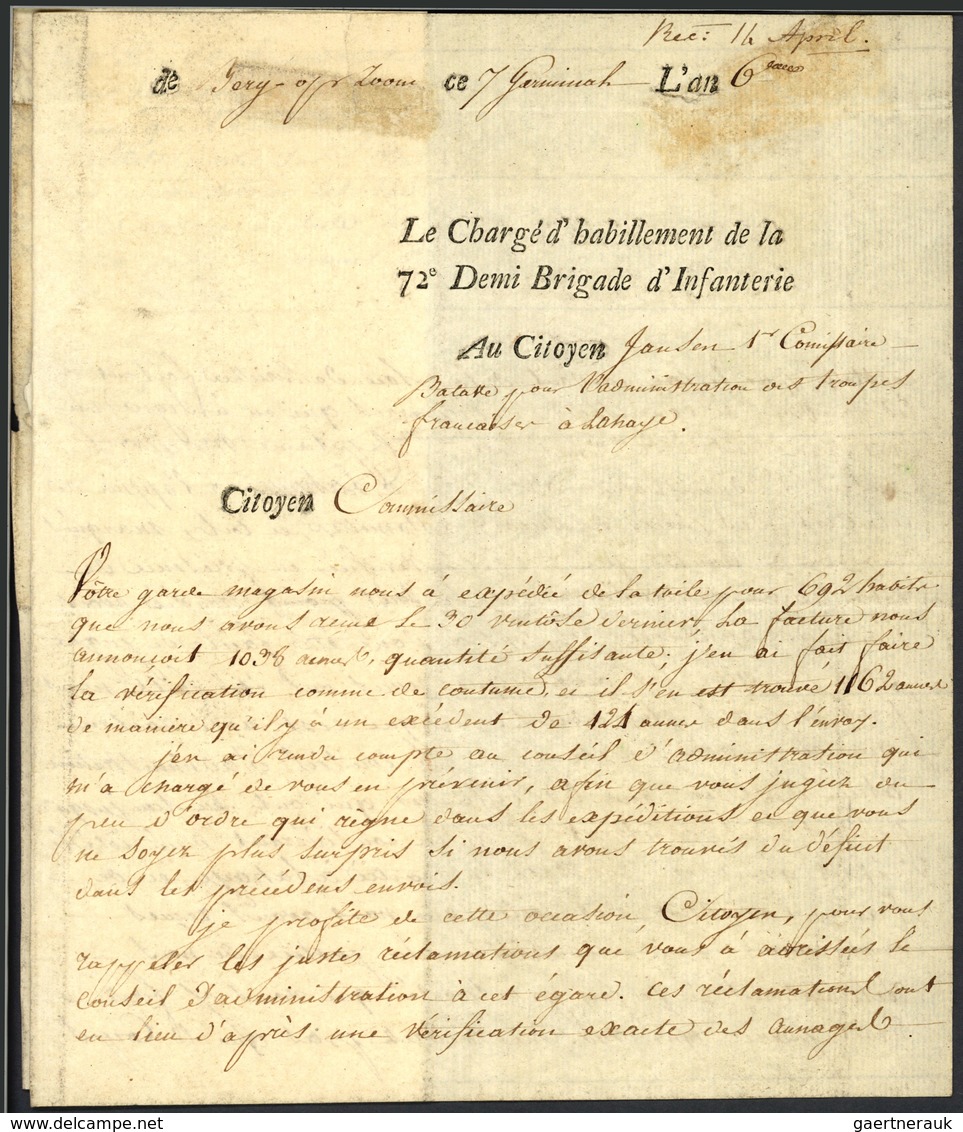 Rec: 14 April.
de Berg-op-Zoom ce 7 Germinal L'an 6eme
Le Chargé d'habillement de la
72e Demi Brigade d'Infanterie
Au Citoyen Jansen 1r Comissaire
Batave pour l'administration des troupes
francaises à Lahaye.
Citoyen Commissaire
Vôtre garde magasin nous à expédié de la toile pour 692 habits
que nous avons le 30 ventôse dernier, La facture nous
annonçoit 1038 aunes, quantité suffisante; j'en ai fait faire
la vérification comme de coutume, et il s'en est trouvé 1162 aunes
de maniere qu'il y à un excédent de 124 aunes dans l'envoy.
j'en ai rendu compte au conseil d'administration qui
m'a chargé de vous en prévenir, afin que vous jugiez du
peu d'ordre qui règne dans les expéditions et que vous
ne soyez plus surpris si nous avons trouvés du déficit
dans les précédens envois.
je profite de cette occasion Citoyen, pour vous
rappeler les justes réclamations que vous à adressées le
Conseil d'administration à cet égard. ces réclamations ont
eu lieu d'après une vérification exacte des aunages
gaertnerauk @ delcampe.net